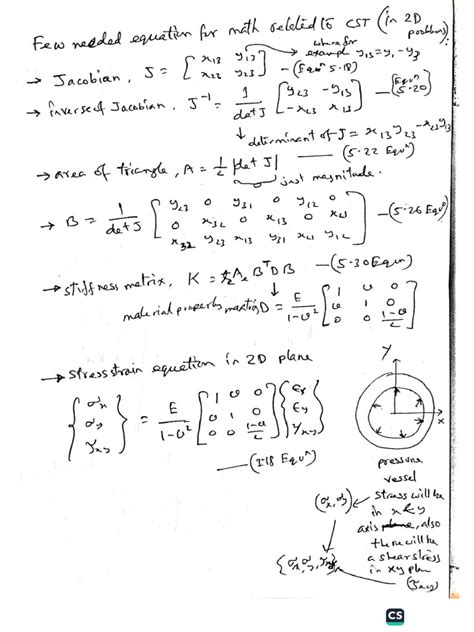 Few needed equation for math related to CST (in 2D problem):
→ Jacobian, J = [ x13 y13 ; x23 y23 ] — (Equn 5.18) where for example y13 = y1 - y3
→ inverse of Jacobian, J^-1 = 1/det J [ y23 -y13 ; -x23 x13 ] — (Equn 5.20)
↓ determinant of J = x13 y23 - x23 y13
→ area of triangle, A = 1/2 |det J| — (5.22 Equn)
just magnitude.
→ B = 1/det J [ y23 0 y31 0 y12 0 ; 0 x32 0 x13 0 x21 ; x32 y23 x13 y31 x21 y12 ] — (5.26 Equn)
→ stiffness matrix, K = tₑAₑ BᵀDB — (5.30 Equn)
material property matrix D = E/1-υ² [ 1 υ 0 ; υ 1 0 ; 0 0 1-υ/2 ]
→ stress strain equation in 2D plane
{ σx ; σy ; τxy } = E/1-υ² [ 1 υ 0 ; υ 1 0 ; 0 0 1-υ/2 ] { εx ; εy ; γxy }
— (1.18 Equn)
y
x
pressure
vessel
(σx, σy) ← stress will be
in x & y
axis plane, also
there will be
a shear stress
in xy plan
(τxy)
{σx, σy, τxy}
CS